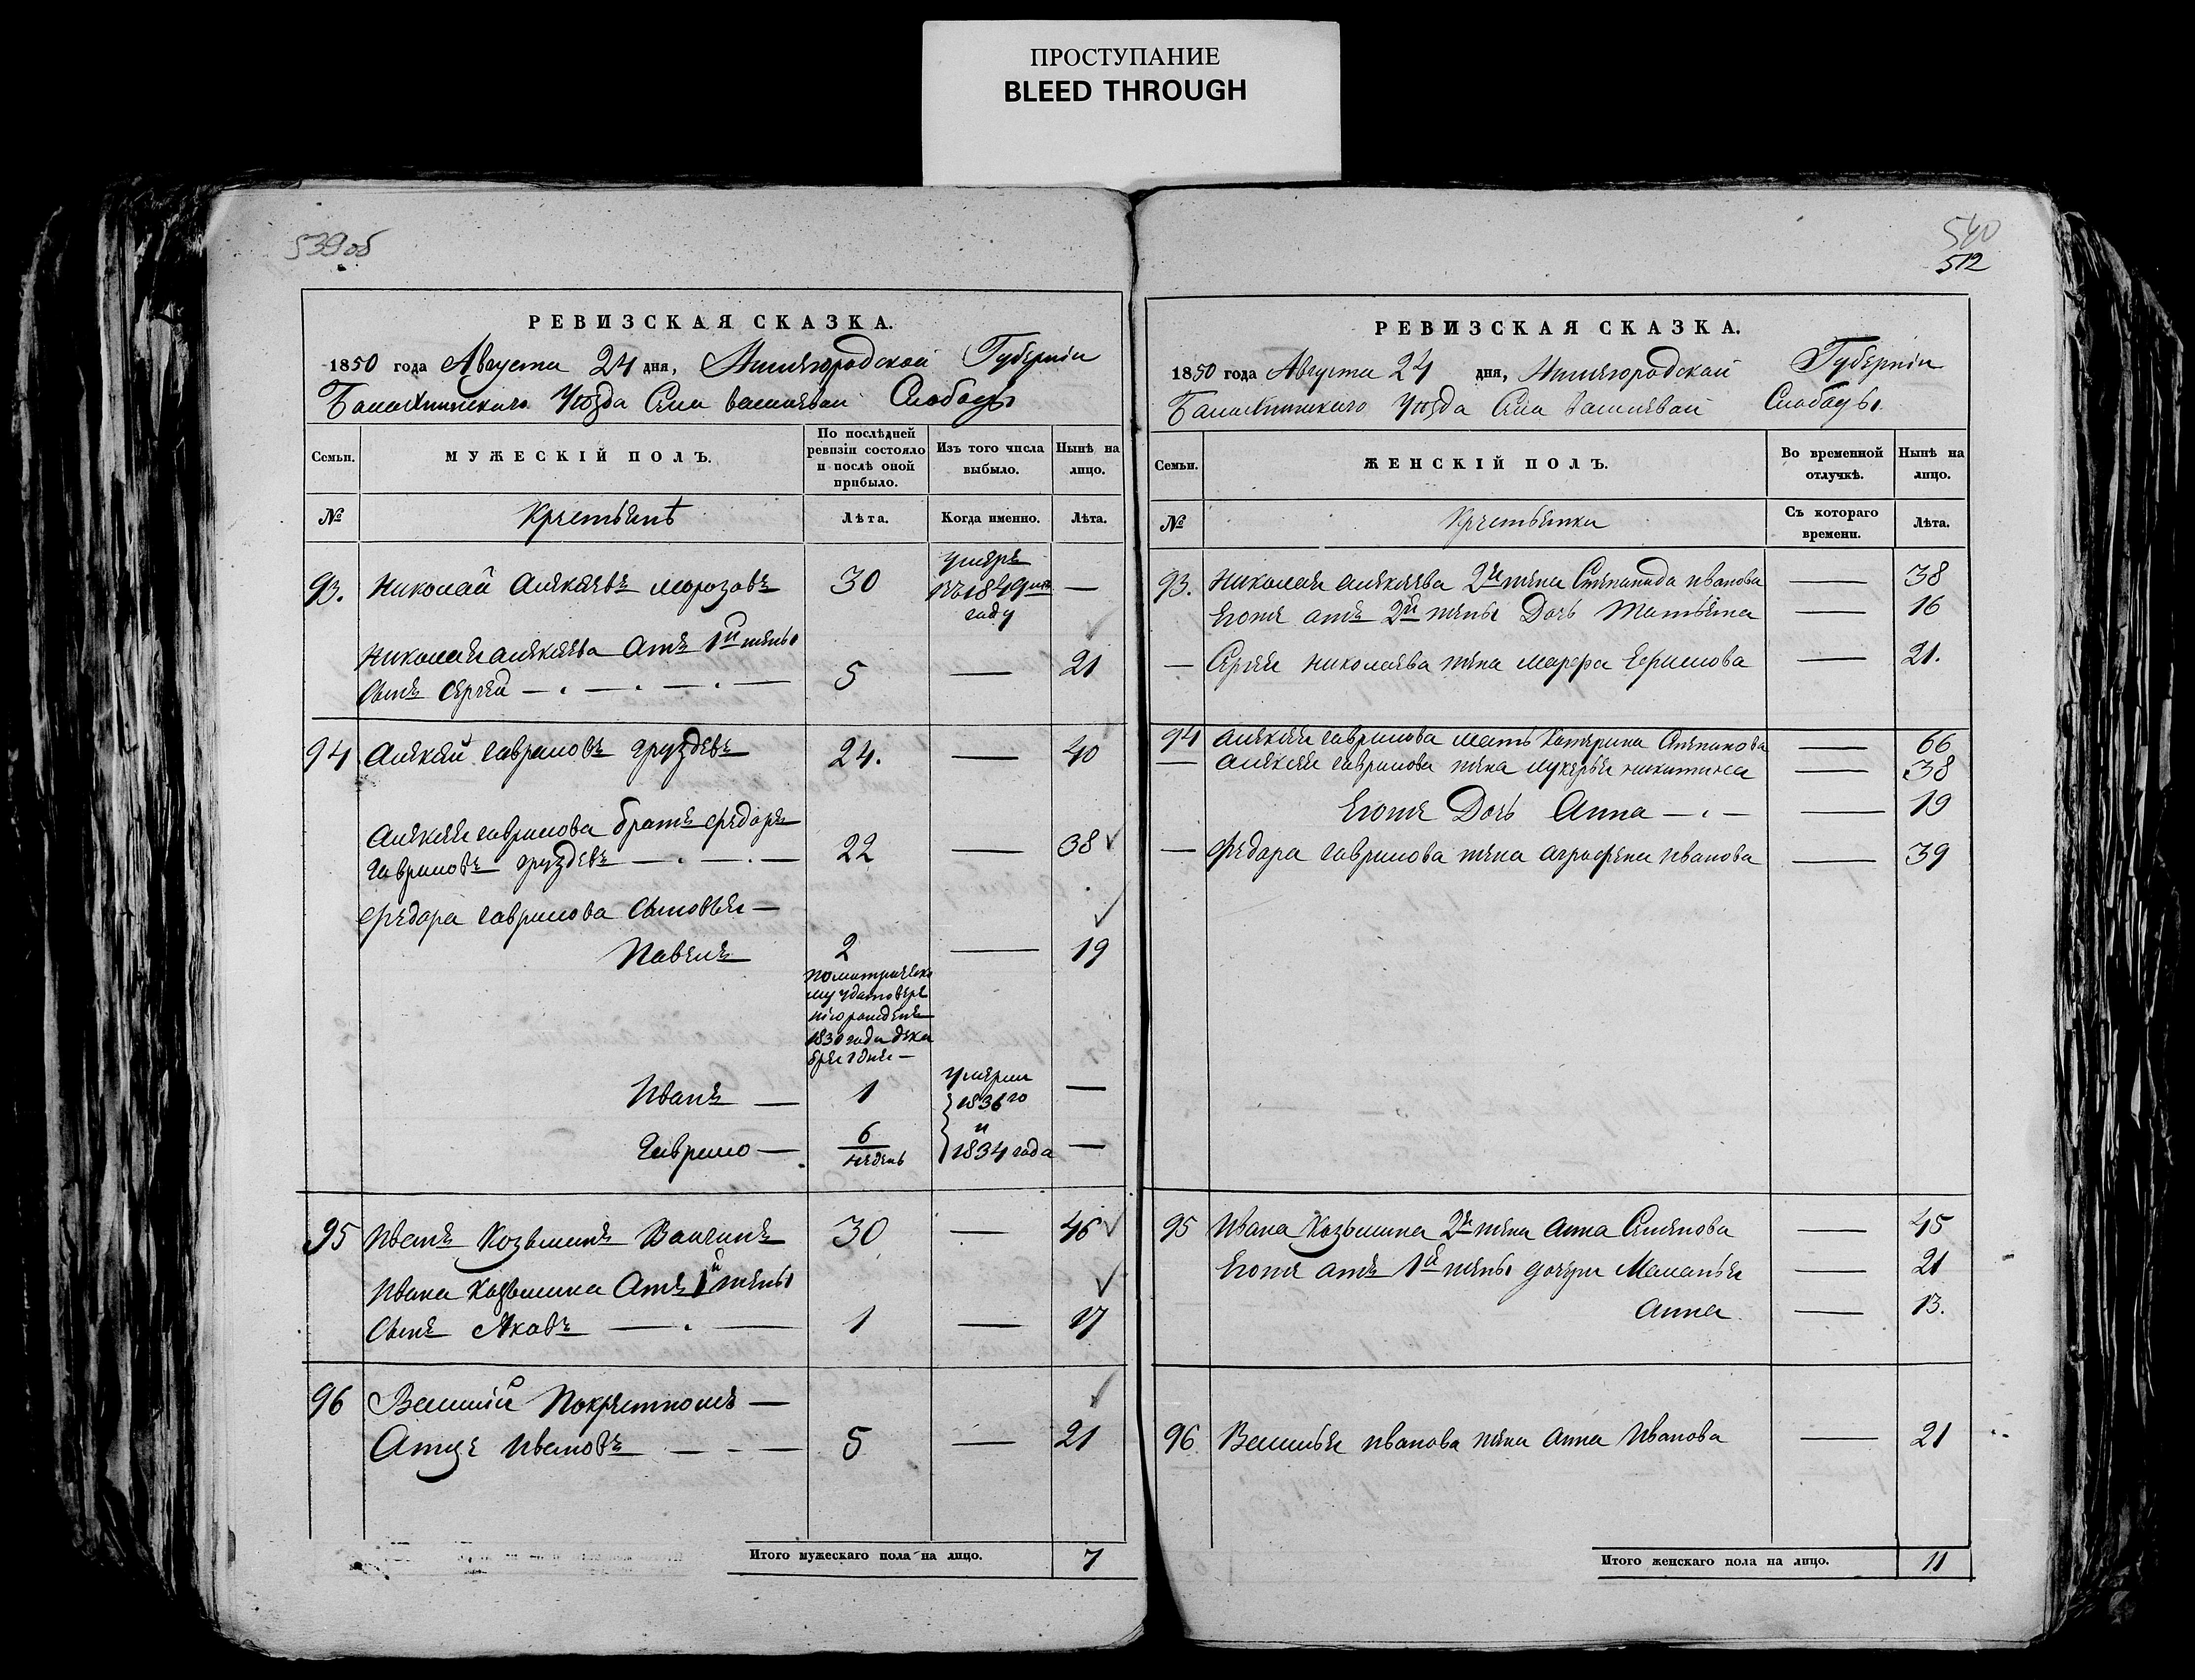 ПРОСТУПАНИЕ
BLEED THROUGH
539 об
РЕВИЗСКАЯ СКАЗКА.
1850 года Августа 24 дня, Нижегородской Губерніи
Балахнинскаго Уѣзда Села Слободы
Семьи.
МУЖЕСКІЙ ПОЛЪ.
По послѣдней ревизіи состояло и послѣ оной прибыло.
Изъ того числа выбыло.
Нынѣ на лицо.
№
Крестьянѣ
Лѣта.
Когда именно.
Лѣта.
93. Николай Алексѣевъ Морозовъ 30 умеръ въ 1849 м году —
Николая Алексѣева отъ 1й жены
сынъ Сергей — 5 — 21
94 Алексѣй Гавриловъ Груздевъ 24. — 40
Алексѣя Гаврилова братъ Федоръ
Гавриловъ Груздевъ — 22 — 38
Федора Гаврилова сыновья —
Павелъ 2 — 19
по метрическо
му удостовере
нію рожденъ
1830 года дека
бря 1 дня —
Иванъ — 1 умерли 1836 го —
и
Гаврило — 6 недель 1834 года —
95 Иванъ Козьминъ 30 — 46
Ивана Козьмина отъ 1й жены
сынъ Яковъ — 1 — 17
96 Василій Покрестному —
Отцу Ивановъ — 5 — 21
Итого мужескаго пола на лицо. 7
540
512
РЕВИЗСКАЯ СКАЗКА.
1850 года Августа 24 дня, Нижегородской Губерніи
Балахнинскаго Уѣзда Села Слободы.
Семьи.
ЖЕНСКІЙ ПОЛЪ.
Во временной отлучкѣ.
Нынѣ на лицо.
№
Крестьянки
Съ котораго времени.
Лѣта.
93. Николая Алексѣева 2я жена Степанида Иванова — 38
Егоже отъ 2й жены Дочь Татьяна — 16
— Сергея Николаева жена Марфа Ефимова — 21.
94 Алексѣя Гаврилова мать Катерина Степанова — 66
— Алексѣя Гаврилова жена Лукерья Никитина — 38
Егоже Дочь Анна — — 19
— Федора Гаврилова жена Аграфена Иванова — 39
95 Ивана Козьмина 2я жена Анна Семенова — 45
Егоже отъ 1й жены дочери Маланья — 21
Анна — 13.
96. Василья Иванова жена Анна Иванова — 21
Итого женскаго пола на лицо. 11